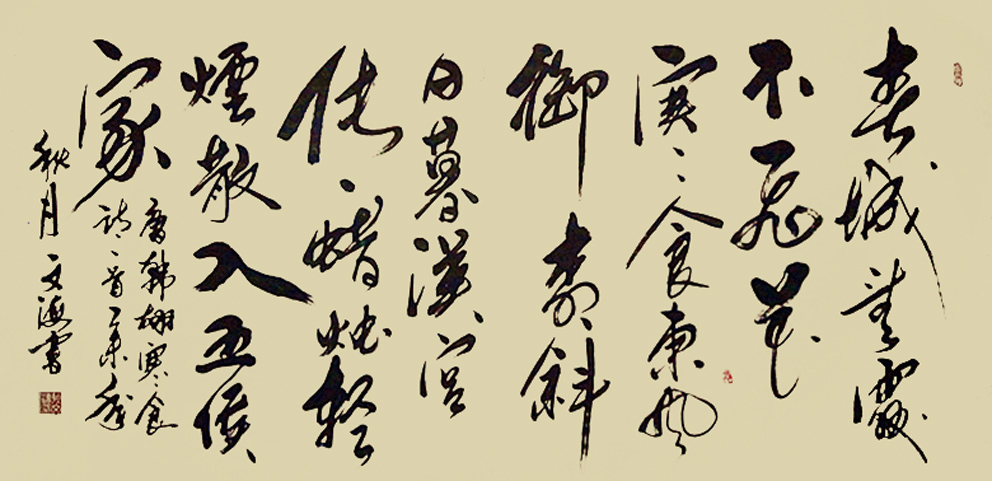 春城無處
不飛花
寒食東風
御柳斜
日暮漢宮
传蜡烛輕
煙散入五侯
家
唐韓翃寒食
詩一首乙未年
秋月文海書